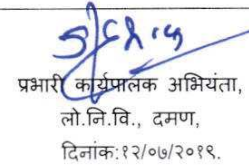 प्रभारी कार्यपालक अभियंता,
लो.नि.वि., दमण,
दिनांक:१२/०७/२०१९.